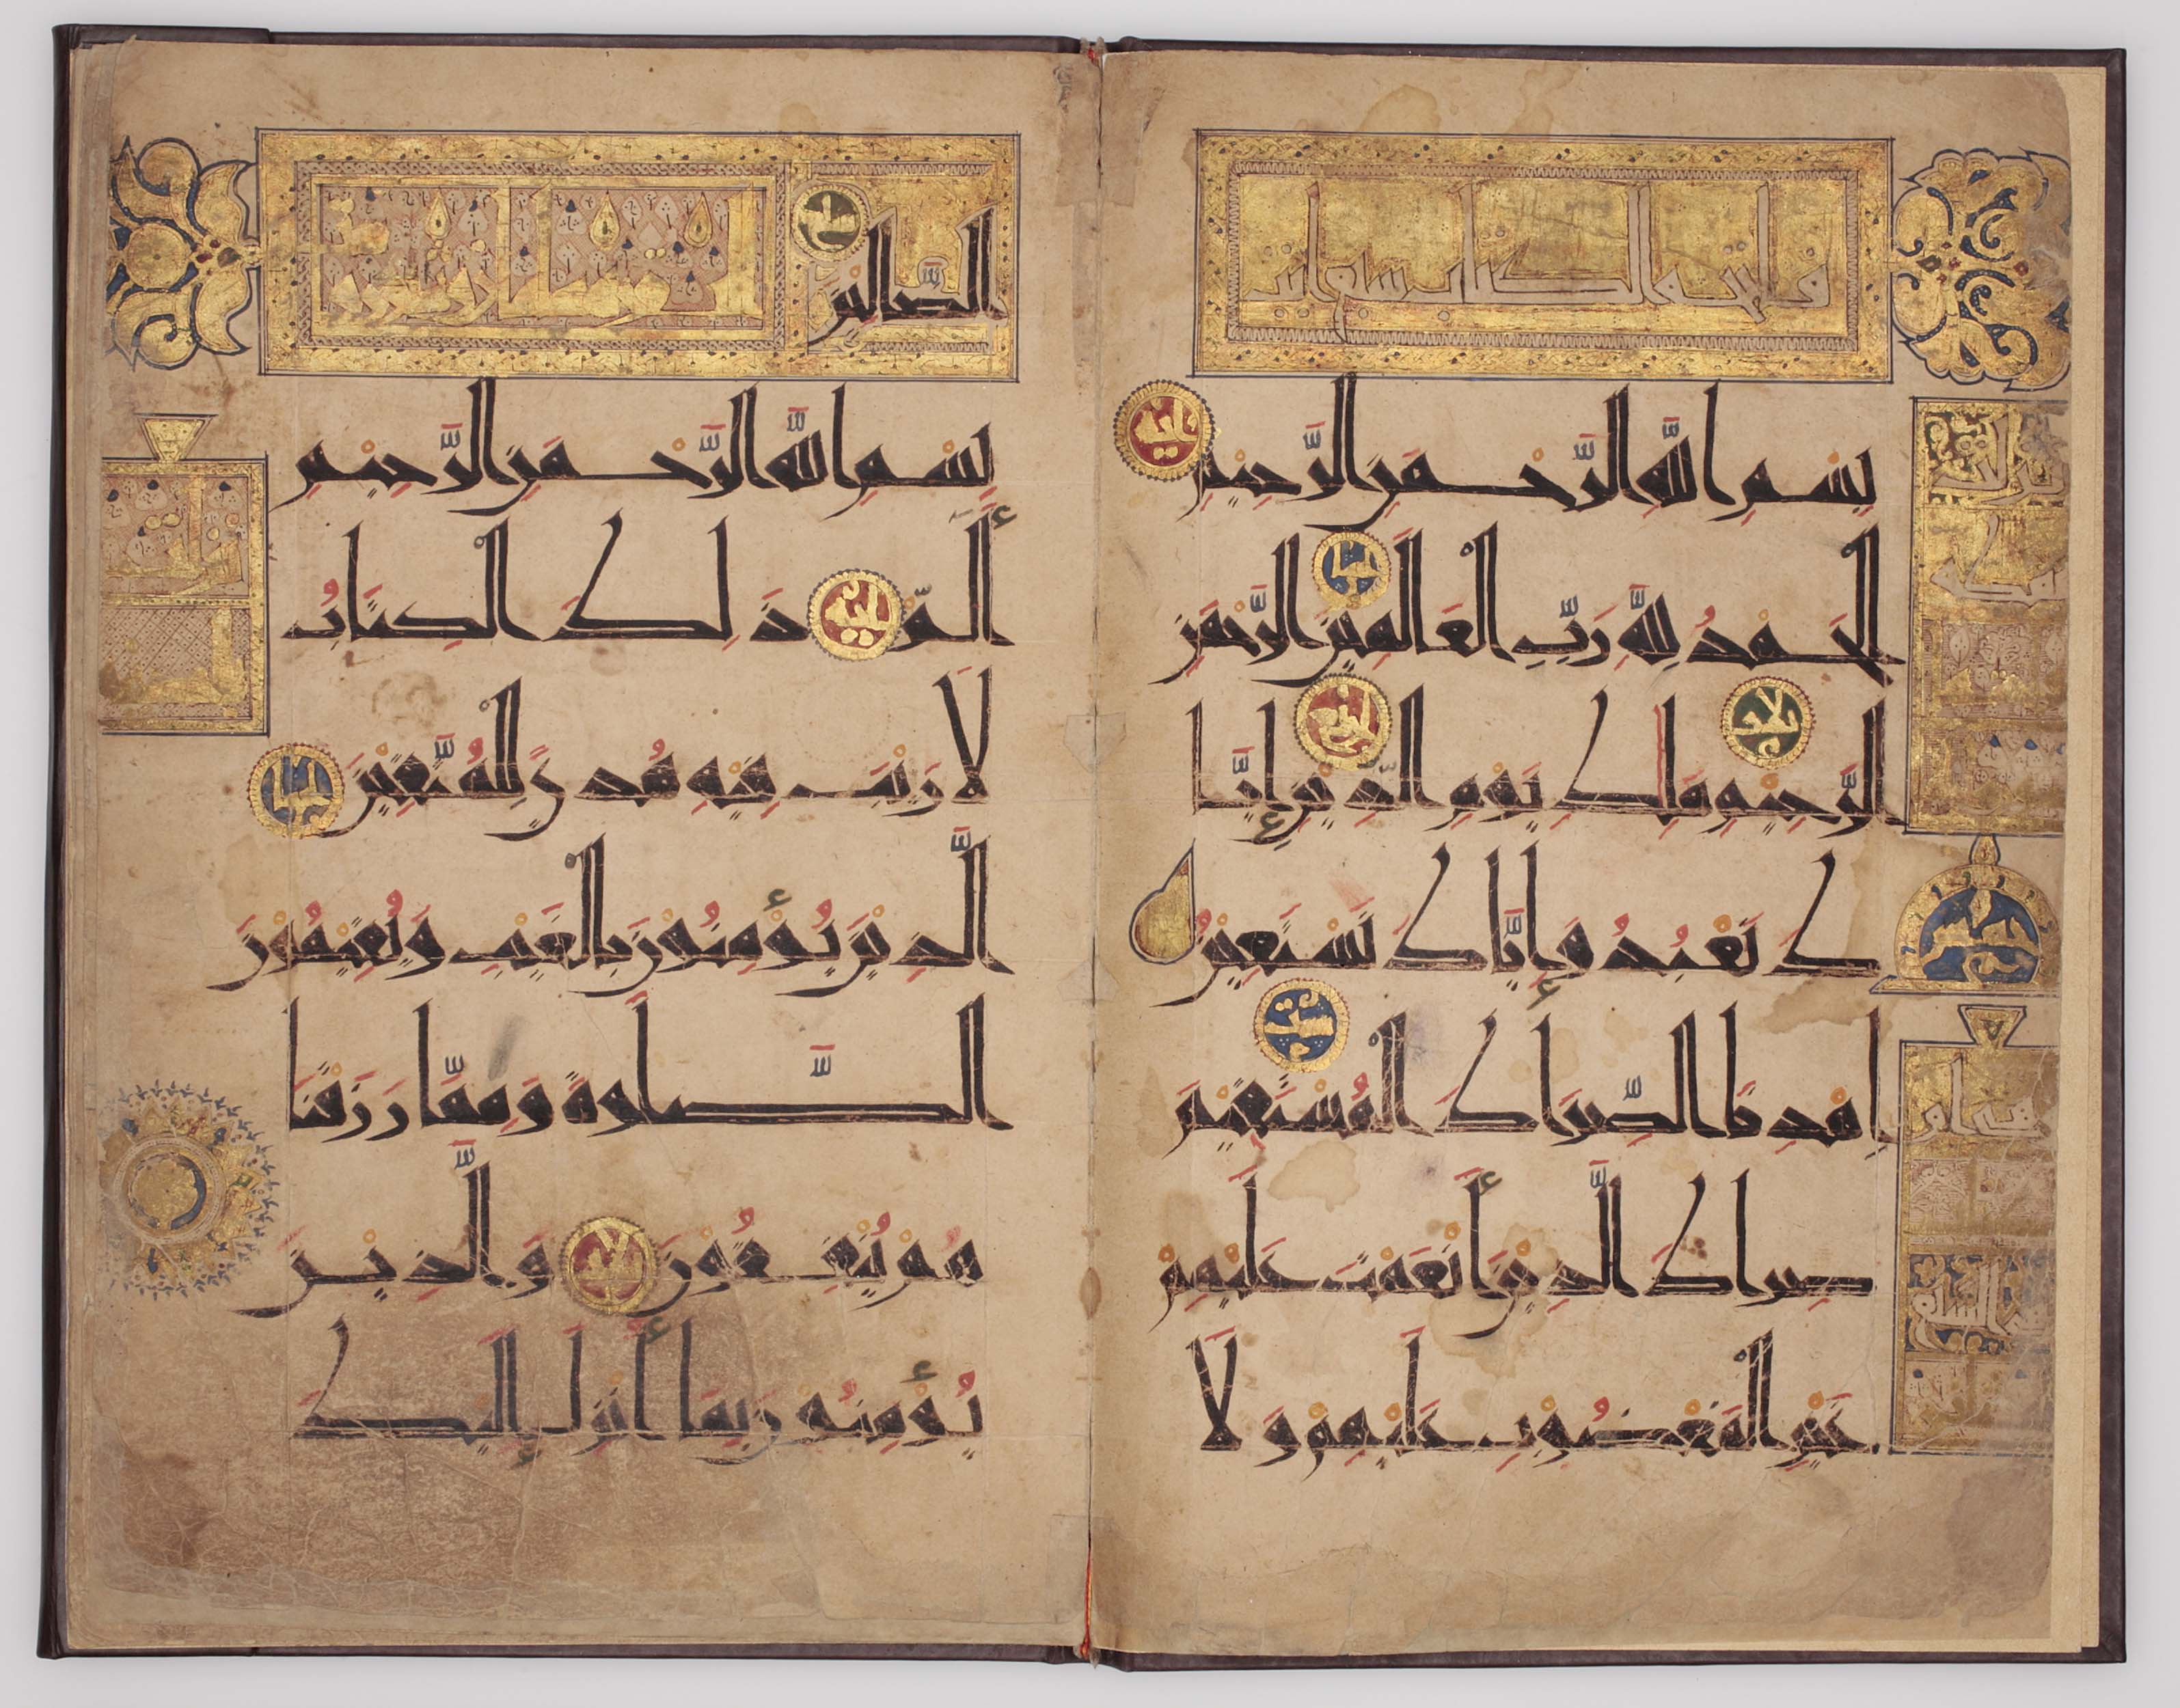 فاتحة الكتاب سبع ايات
بِسْمِ اللَّهِ الرَّحْمَنِ الرَّحِيْمِ
الْحَمْدُ لِلَّهِ رَبِّ الْعَالَمِيْنَ الرَّحْمَنِ
الرَّحِيْمِ مَلِكِ يَوْمِ الدِّيْنِ إِيَّا
كَ نَعْبُدُ وَإِيَّاكَ نَسْتَعِيْنُ
اِهْدِنَا الصِّرَاطَ الْمُسْتَقِيْمَ
صِرَاطَ الَّذِيْنَ أَنْعَمْتَ عَلَيْهِمْ
غَيْرِ الْمَغْضُوْبِ عَلَيْهِمْ وَلَا
الضالين
بِسْمِ اللَّهِ الرَّحْمَنِ الرَّحِيْمِ
الم ذَلِكَ الْكِتَابُ
لَا رَيْبَ فِيْهِ هُدًى لِلْمُتَّقِيْنَ
الَّذِيْنَ يُؤْمِنُوْنَ بِالْغَيْبِ وَيُقِيْمُوْنَ
الصَّلَوةَ وَمِمَّا رَزَقْنَا
هُمْ يُنْفِقُوْنَ وَالَّذِيْنَ
يُؤْمِنُوْنَ بِمَا أُنْزِلَ إِلَيْكَ